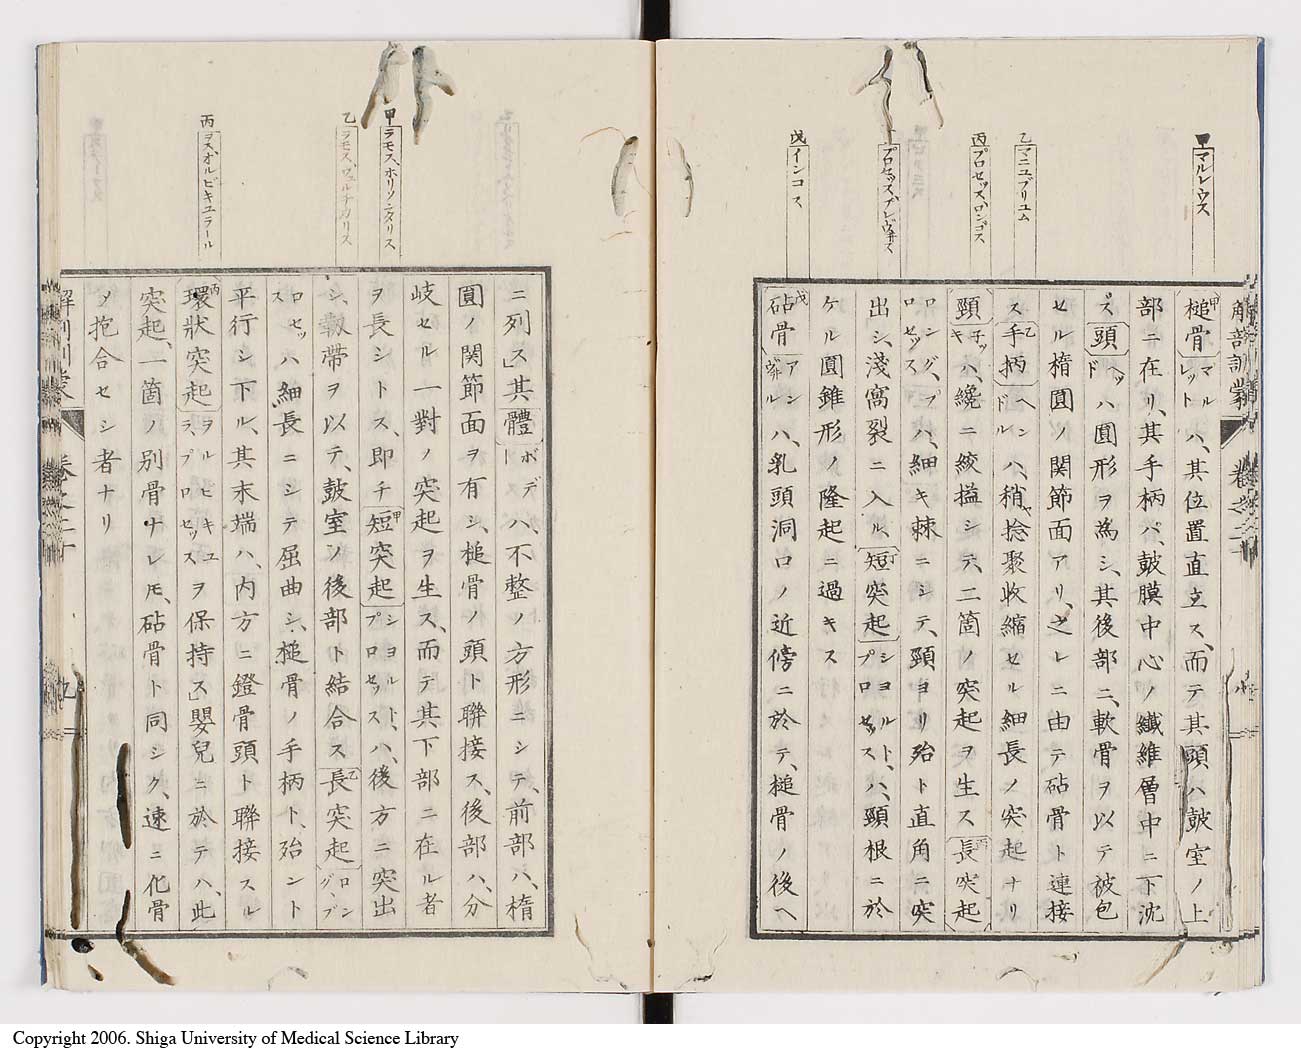 甲マルレウス
乙マニュブリユム
丙プロセッスロンゴス
丁プロセッスブレヴィス
戊インコス
解剖訓蒙
槌骨マルレットハ、其位置直立ス、而テ其頭ハ鼓室ノ上
部ニ在リ、其手柄ハ、鼓膜中心ノ纖維層中ニ下沈
ス頭ヘッドハ圓形ヲ為シ、其後部ニ、軟骨ヲ以テ被包
セル楕圓ノ関節面アリ、之レニ由テ砧骨ト連接
ス手柄ヘンドルハ、稍捻聚收縮セル細長ノ突起ナリ
頸子ッキハ、纔ニ絞搤シテ、二箇ノ突起ヲ生ス長突起
ロング、プロセッスハ、細キ棘ニシテ、頸ヨリ殆ト直角ニ突
出シ、淺窩裂ニ入ル、短突起ショルト、プロセッスハ、頸根ニ於
ケル圓錐形ノ隆起ニ過キス
砧骨アンヴィルハ、乳頭洞口ノ近傍ニ於テ、槌骨ノ後ヘ
八
甲ラモス、ホリソンタリス
乙ラモス、ウェルチカリス
丙ヲスオルビキュラール
ニ列ス」其體ボデーハ、不整ノ方形ニシテ、前部ハ、楕
圓ノ関節面ヲ有シ、槌骨ノ頭ト聯接ス、後部ハ、分
岐セル一對ノ突起ヲ生ス、而テ其、下部ニ在ル者
ヲ長シトス、即チ短突起ショルト、プロセッスハ、後方ニ突出
シ、靱帯ヲ以テ、鼓室ノ後部ト結合ス長突起ロング、プ
ロセッスハ、細長ニシテ屈曲シ、槌骨ノ手柄ト、殆ント
平行シ下ル、其末端ハ、内方ニ鐙骨頭ト聯接スル
環狀突起ヲルビキュラ、プロセッスヲ保持ス」嬰兒ニ於テハ、此
突起、一箇ノ別骨ナレ𪜈、砧骨ト同シク、速ニ化骨
ソ抱合セシ者ナリ
解剖訓蒙
九